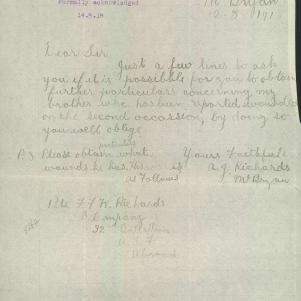 Formally acknowledged
14.8.18
Mt Bryan
12. 8. 191
Dear Sir
Just a few lines to ask
you if it is possible for you to obtain
further particulars concerning my
brother who has been reported wounded
on the second occassion, by doing so
you will oblige
P.S Please obtain what Yours Faithfull
wounds he has. is A. J. Richards
as Follows Mt Bryan
Pte F. W. Richards
Company
32 Battalion
A. I. F
Abroad